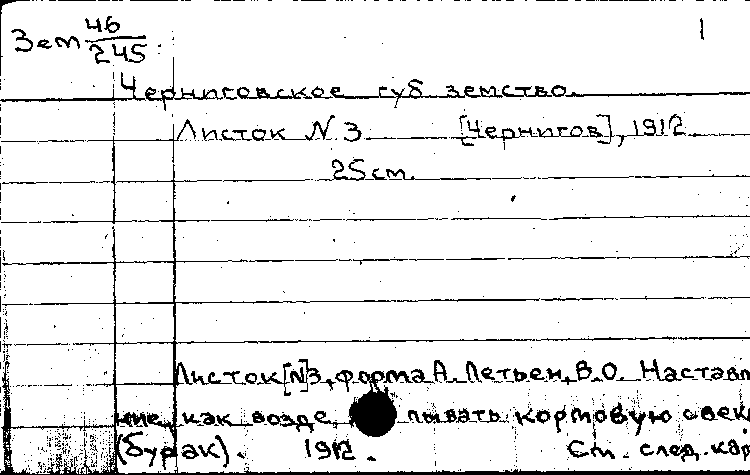 Зем 46/245 1
Черниговское губ земство.
Листок N 3. [Чернигов], 1912.
25 см.
Листок [N]3, форма А. Петьен, В.О. Наставл
ние, как возде пывать кормовую свек
(бурак). 1912. См. след. кар